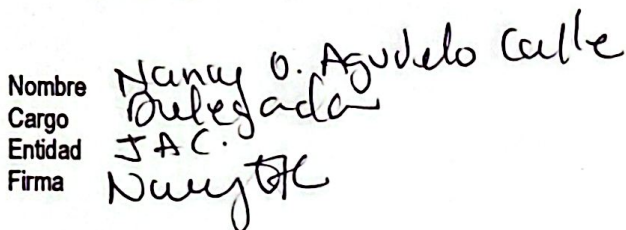 Nombre Nancy O. Agudelo Calle
Cargo Delegada
Entidad JAC.
Firma Nancy